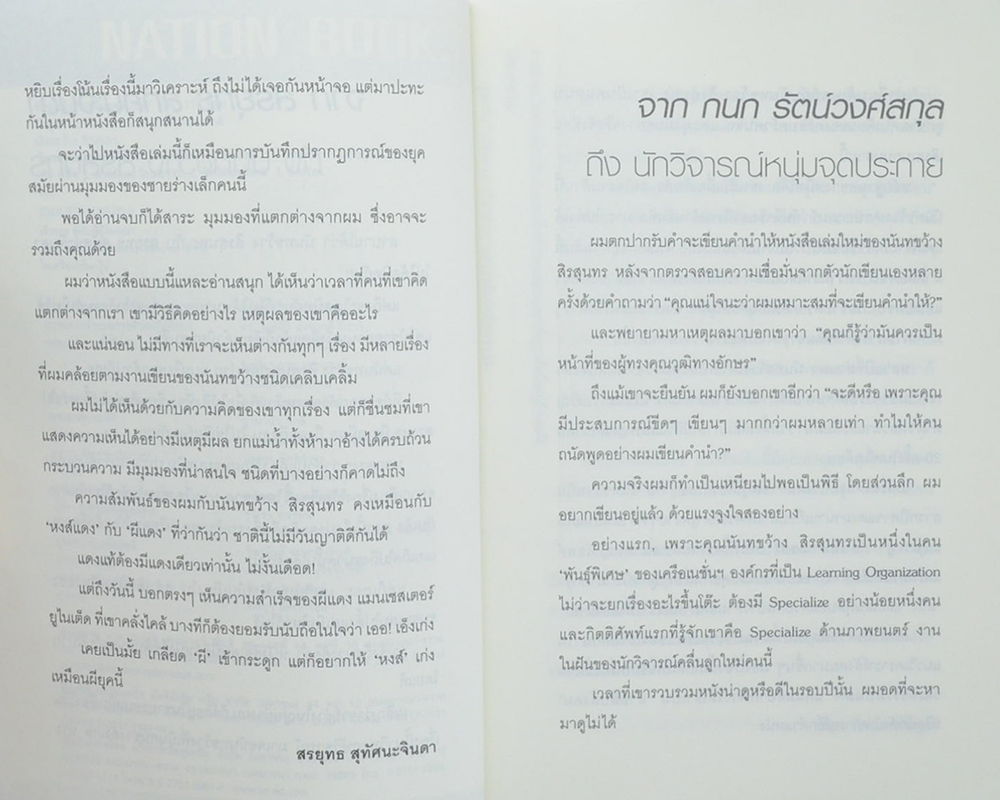 หยิบเรื่องโน้นเรื่องนี้มาวิเคราะห์ ถึงไม่ได้เจอกันหน้าจอ แต่มาปะทะ
กันในหน้าหนังสือก็สนุกสนานได้
จะว่าไปหนังสือเล่มนี้ก็เหมือนการบันทึกปรากฏการณ์ของยุค
สมัยผ่านมุมมองของชายร่างเล็กคนนี้
พอได้อ่านจบก็ได้สาระ มุมมองที่แตกต่างจากผม ซึ่งอาจจะ
รวมถึงคุณด้วย
ผมว่าหนังสือแบบนี้แหละอ่านสนุก ได้เห็นว่าเวลาที่คนที่เขาคิด
แตกต่างจากเรา เขามีวิธีคิดอย่างไร เหตุผลของเขาคืออะไร
และแน่นอน ไม่มีทางที่เราจะเห็นต่างกันทุกๆ เรื่อง มีหลายเรื่อง
ที่ผมคล้อยตามงานเขียนของนันทขว้างชนิดเคลิบเคลิ้ม
ผมไม่ได้เห็นด้วยกับความคิดของเขาทุกเรื่อง แต่ก็ชื่นชมที่เขา
แสดงความเห็นได้อย่างมีเหตุมีผล ยกแม่น้ำทั้งห้ามาอ้างได้ครบถ้วน
กระบวนความ มีมุมมองที่น่าสนใจ ชนิดที่บางอย่างก็คาดไม่ถึง
ความสัมพันธ์ของผมกับนันทขว้าง สิรสุนทร คงเหมือนกับ
'หงส์แดง' กับ 'ผีแดง' ที่ว่ากันว่า ชาตินี้ไม่มีวันญาติดีกันได้
แดงแท้ต้องมีแดงเดียวเท่านั้น ไม่งั้นเดือด!
แต่ถึงวันนี้ บอกตรงๆ เห็นความสำเร็จของผีแดง แมนเชสเตอร์
ยูไนเต็ด ที่เขาคลั่งไคล้ บางทีก็ต้องยอมรับนับถือในใจว่า เออ! เอ็งเก่ง
เคยเป็นมั้ย เกลียด 'ผี' เข้ากระดูก แต่ก็อยากให้ 'หงส์' เก่ง
เหมือนผียุคนี้
สรยุทธ สุทัศนะจินดา
จาก กนก รัตน์วงศ์สกุล
ถึง นักวิจารณ์หนุ่มจุดประกาย
ผมตกปากรับคำจะเขียนคำนำให้หนังสือเล่มใหม่ของนันทขว้าง
สิรสุนทร หลังจากตรวจสอบความเชื่อมั่นจากตัวนักเขียนเองหลาย
ครั้งด้วยคำถามว่า "คุณแน่ใจนะว่าผมเหมาะสมที่จะเขียนคำนำให้?"
และพยายามหาเหตุผลมาบอกเขาว่า "คุณก็รู้ว่ามันควรเป็น
หน้าที่ของผู้ทรงคุณวุฒิทางอักษร"
ถึงแม้เขาจะยืนยัน ผมก็ยังบอกเขาอีกว่า "จะดีหรือ เพราะคุณ
มีประสบการณ์ขีดๆ เขียนๆ มากกว่าผมหลายเท่า ทำไมให้คน
ถนัดพูดอย่างผมเขียนคำนำ?"
ความจริงผมก็ทำเป็นเหนียมไปพอเป็นพิธี โดยส่วนลึก ผม
อยากเขียนอยู่แล้ว ด้วยแรงจูงใจสองอย่าง
อย่างแรก, เพราะคุณนันทขว้าง สิรสุนทรเป็นหนึ่งในคน
'พันธุ์พิเศษ' ของเครือเนชั่นฯ องค์กรที่เป็น Learning Organization
ไม่ว่าจะยกเรื่องอะไรขึ้นโต๊ะ ต้องมี Specialize อย่างน้อยหนึ่งคน
และกิตติศัพท์แรกที่รู้จักเขาคือ Specialize ด้านภาพยนตร์ งาน
ในฝันของนักวิจารณ์คลื่นลูกใหม่คนนี้
เวลาที่เขารวบรวมหนังน่าดูหรือดีในรอบปีนั้น ผมอดที่จะหา
มาดูไม่ได้